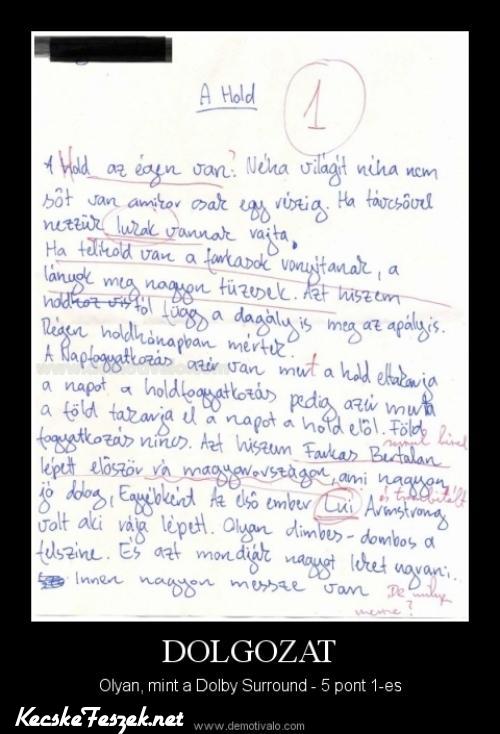 A Hold
1
A Hold az égen van? Néha világít néha nem
sőt van amikor csak egy részig. Ha távcsővel
nezzük lukak vannak rajta.
Ha telihold van a farkasok vonyítanak, a
lányok meg nagyon tüzesek. Azt hiszem
holdhoz vistól függ a dagály is meg az apály is.
Régen holdhónapban mértek.
A Napfogyatkozás azér van mert a hold eltakarja
a napot a holdfogyatkozás pedig azér mert
a föld takarja el a napot a hold elöl. Föld
fogyatkozás nincs. Azt hiszem Farkas Bertalan
lépett elöször rá magyarországon, ami nagyon
jó dolog, Egyébként Az elsö ember Lui Armstrong
volt aki rája lépett. Olyan dimbes-dombos a
felszine. És azt mondják nagyot lehet ugrani.
Innen nagyon messze van De milyen
messze?
DOLGOZAT
Olyan, mint a Dolby Surround - 5 pont 1-es
KecskeFeszek.net
www.demotivalo.com